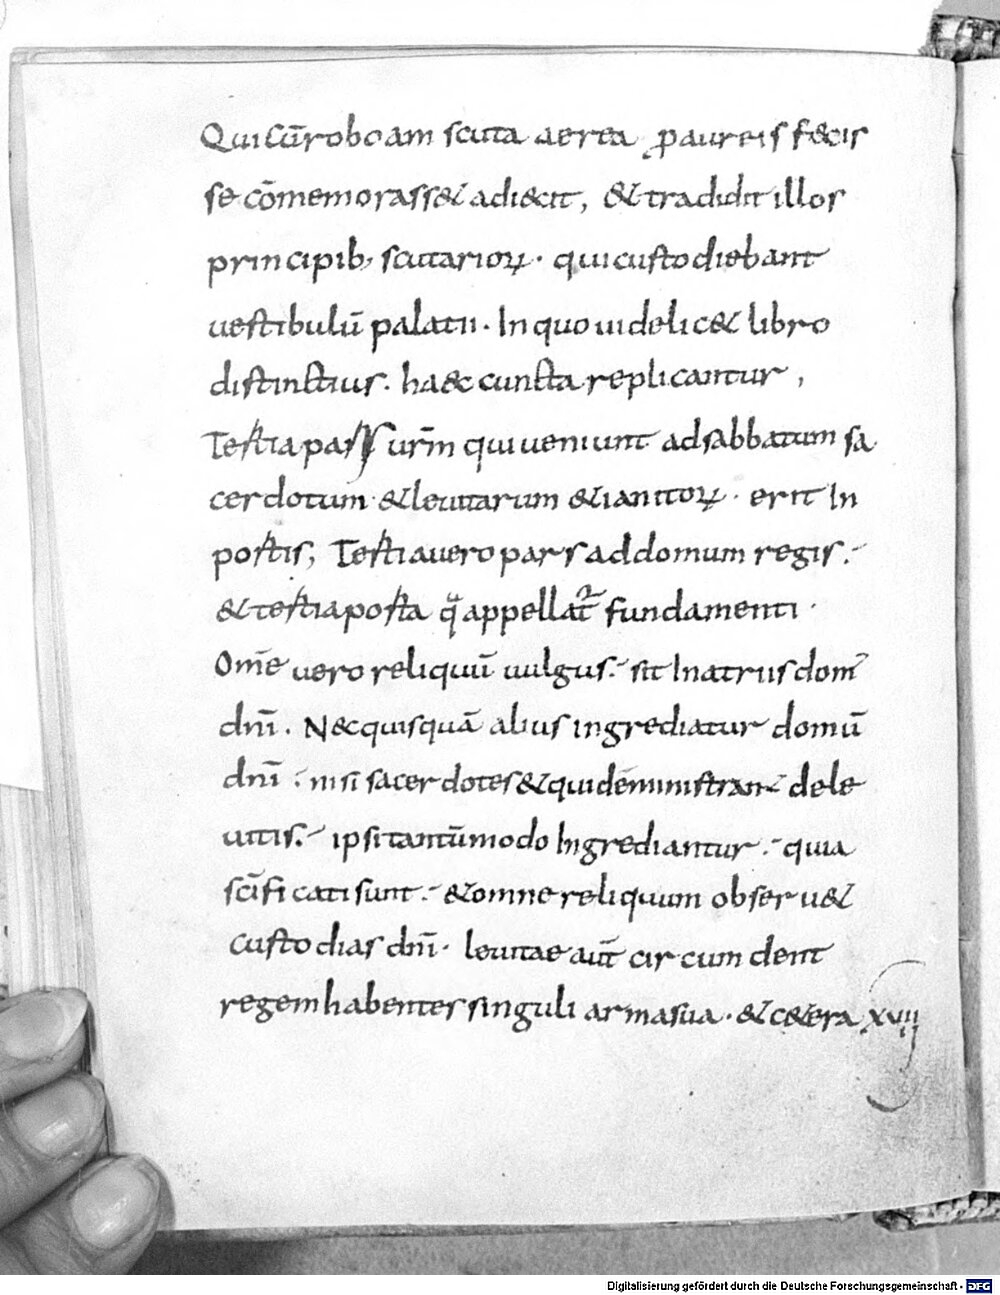 Qui cū roboam scuta aerea ꝓ aureis fecis
se cōmemorasset adiecit, & tradidit illos
principib; scutarioꝝ. qui custodiebant
uestibulū palatii. In quo uidelicet libro
distinctius. haec cuncta replicantur,
Tertia pars urm̄ qui ueniunt ad sabbatum sa
cerdotum & leuitarum & ianitoꝝ. erit In
portis; Tertia uero pars ad domum regis.
& tertia porta quae appellat̄ fundamenti.
Om̄e uero reliquū uulgus. sit In atriis dom̄
dnī. Nec quisquā alius ingrediatur domū
dnī. nisi sacerdotes & qui dēministrant de le
uitis. ipsi tantūmodo Ingrediantur. quia
scīficati sunt. & omne reliquum obseruet
custodias dnī. leuitae aūt circumdent
regem habentes singuli arma sua. & cetera xviij
Digitalisierung gefördert durch die Deutsche Forschungsgemeinschaft - DFG